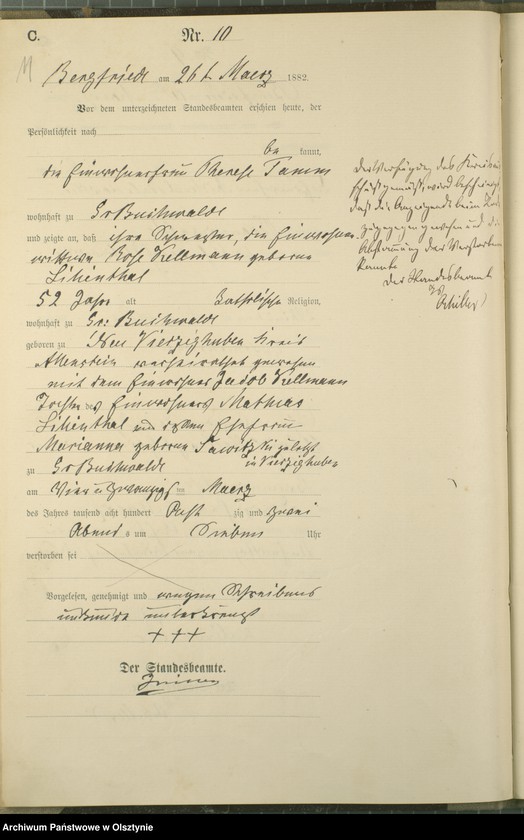 C.
Nr. 10
Bergfriede am 26t Maerz 1882.
Vor dem unterzeichneten Standesbeamten erschien heute, der
Persönlichkeit nach
be kannt,
die Einwohnerfrau Therese Tamm
wohnhaft zu Gr Buchwalde
und zeigte an, daß ihre Schwester, die Einwohner
wittwe Rosa Kellmann geborne
Lilienthal
52 Jahre alt katholische Religion,
wohnhaft zu Gr: Buchwalde
geboren zu Neu Vierzighuben Kreis
Allenstein verheirathet gewesen
mit dem Einwohner Jacob Kellmann
Tochter des Einwohners Mathias
Lilienthal und dessen Ehefrau
Marianna geborne zuletzt
in Vierzighuben
zu Gr Buchwalde
am Vier u Zwanzigst en Maerz
des Jahres tausend acht hundert Acht zig und zwei
Abend s um Sieben Uhr
verstorben sei
Vorgelesen, genehmigt und wegen Schreibens
unkunde unterkreuzt
+++
Der Standesbeamte.
Der Verfügung des Kreis
gemäß, wird bescheinigt
daß die Anzeigende beim Tode
zugegen gewesen und die
Abstammung der Verstorbenen
kannte
Der Standesbeamte
Archiwum Państwowe w Olsztynie